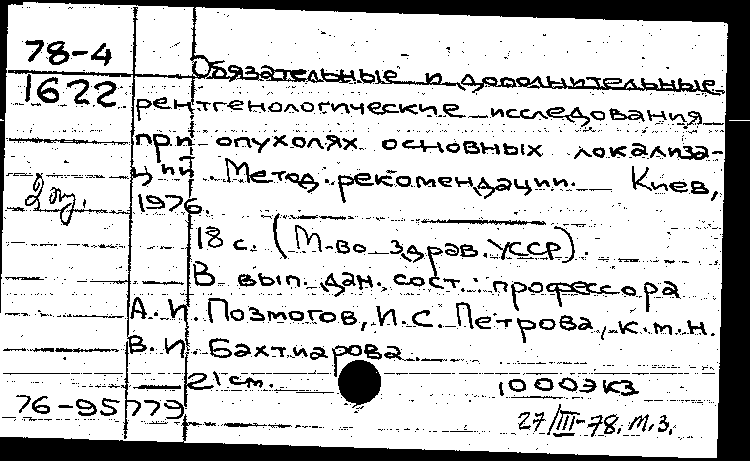 78-4
1622
Обязательные и дополнительные
рентгенологические исследования
при опухолях основных локализа-
ций. Метод. рекомендации. Киев,
2
1976.
18 с. (М-во здрав. УССР).
В вып. дан. сост.: профессора
А.И. Позмогов, И.С. Петрова, к.м.н.
В.И. Бахтиарова.
21 см. 1000экз
76-95779
27/III-78. М.З.